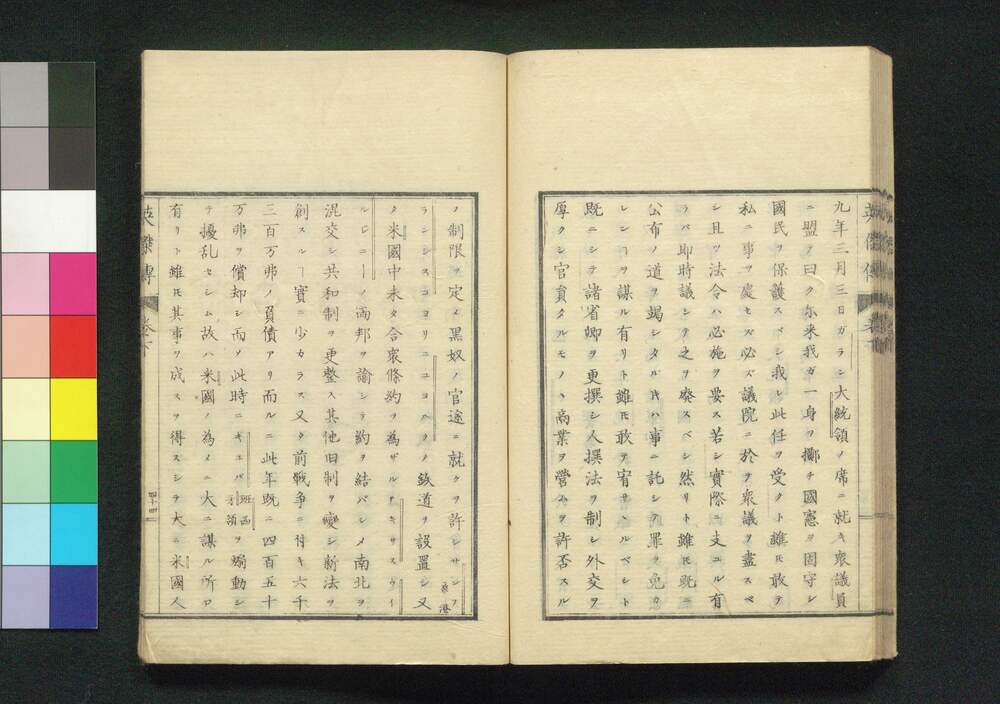 九年三月三日ガラシ大統領ノ席ニ就キ衆議員
ニ盟ヲ曰ク尓来我ガ一身ヲ擲チ國憲ヲ固守シ
國民ヲ保護スベシ我レ此任ヲ受クト雖モ敢テ
私ニ事ヲ處セズ必ズ議院ニ於ヲ衆議ヲ盡スベ
シ且ツ法令ハ必施ヲ要ス若シ實際ニ支ユル有
ラバ即時議シテ之ヲ癈スベシ然リト雖モ既ニ
公布ノ道ヲ竭シタル片ハ事ニ託シテ罪ヲ免カ
レンヿヲ謀ル有リト雖モ敢テ宥サヽルベシト
既ニシテ諸省卿ヲ更撰シ人撰法ヲ制シ外交ヲ
厚クシ官員タルモノヽ商業ヲ營ムヲ許否スル
英傑傳
ノ制限ヲ定メ黒奴ノ官途ニ就クヲ許シサンフ
ランシスコヨリニユヨルクノ鉄道ヲ設置シ又
桑港
タ米國中未タ合衆條約ヲ為ザルテキサスウイ
ルジニーノ両邦ヲ諭シテ約ヲ結バシメ南北ヲ
混交シ共和制ヲ更整ス其他旧制ヲ變シ新法ヲ
創スルヿ實ニ少カラス又タ前戰争ニ付キ六千
三百万弗ノ負債アリ而ルニ此年既ニ四百五十
万弗ヲ償却シ而ノ此時ニキユバ班西牙領ヲ煽動シ
テ擾乱セシム故ハ米國ノ為メニ大ニ謀ル所ロ
有リト雖モ其事ヲ成スヲ得スシテ大ニ米國人
英傑傳 巻之下
四十四